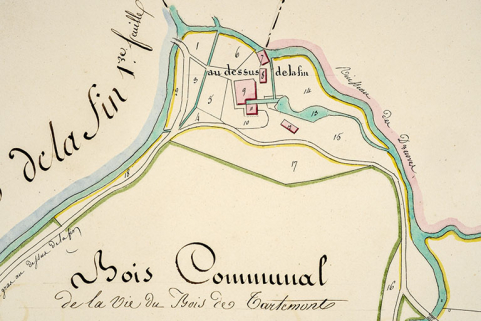 de la fin 1.re feuille
au dessus de la fin
1
6
7
8
3
9
14
2
5
4
10
13
15
17
18
16
Ruisseau du
au dessus de la fin
Bois Communal
de la Vie du Bois de Tartemont